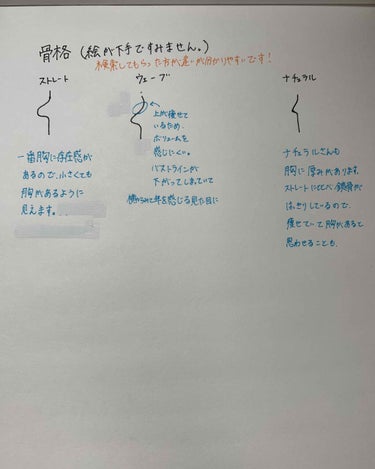 骨格(絵が下手ですみません。)
検索してもらった方が違いが分かりやすいです!
ストレート
一番胸に存在感が
あるので、小さくても
胸があるように
見えます。
ウェーブ
上が痩せて
いるため、
ボリュームを
感じにくい。
バストラインが
下がってしまっていて
横からみて年を感じる見た目に
ナチュラル
ナチュラルさんも
胸に厚みがあります。
ストレートに比べ、鎖骨が
はっきりしているので、
痩せていて胸があると
思わせることも、